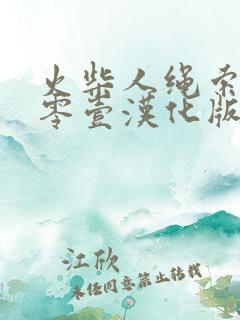 火柴人绳索
零壹漢化版
江欣
未经同意禁止转载